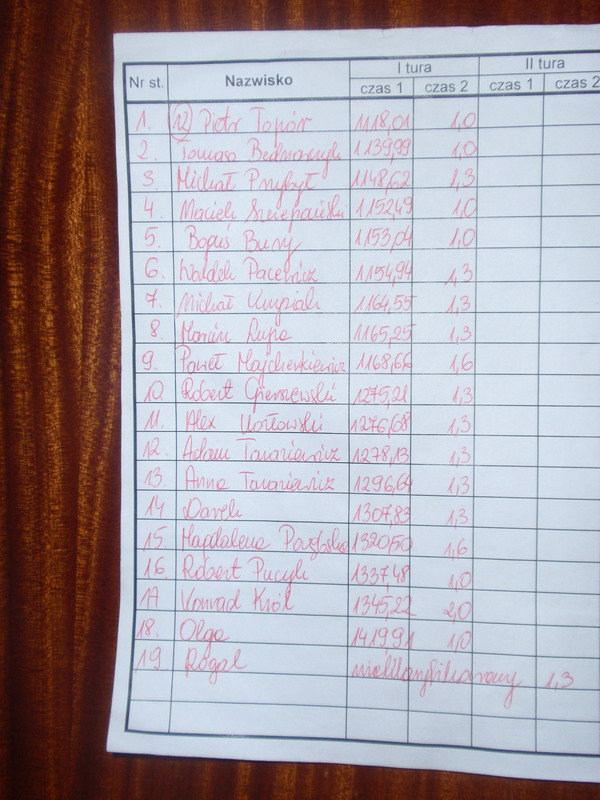 Nr st. Nazwisko I tura II tura
czas 1 czas 2 czas 1 czas 2
1. (12) Piotr Topór 1118,01 1,0
2. Tomasz Bednarczyk 1139,99 1,0
3. Michał Przybył 1148,62 1,3
4. Maciek Szczepański 1152,49 1,0
5. Boguś Bury 1153,04 1,0
6. Waldek Pacewicz 1154,94 1,3
7. Michał Kurpiak 1164,55 1,3
8. Marcin Lupa 1165,25 1,3
9. Paweł Majcherkiewicz 1168,66 1,6
10. Robert Gierszewski 1275,21 1,3
11. Alex Kozłowski 1276,68 1,3
12. Adam Tarasiewicz 1278,13 1,3
13. Anna Tarasiewicz 1296,64 1,3
14 Darek 1307,83 1,3
15. Magdalena 1320,50 1,6
16. Robert Pucyk 1337,48 1,0
17 Konrad Król 1345,22 2,0
18. Olga 1419,91 1,0
19 Rogal nieklasyfikowany 1,3